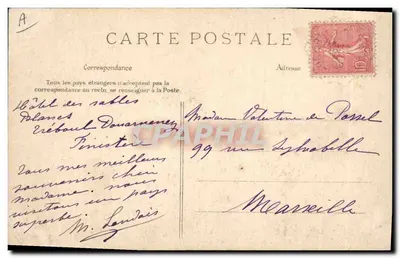 A
CARTE POSTALE
Correspondance
Adresse
Tous les pays étrangers n'acceptent pas la
correspondance au recto, se renseigner à la Poste.
Hôtel des sables
blancs
Tréboul Douarnenez
Finistère
Tous mes meilleurs
souvenirs chère
Madame. nous
visitons un pays
superbe.
M.
Madame Valentine de Possel
99 rue Sylvabelle
Marseille
CPARHPHIL